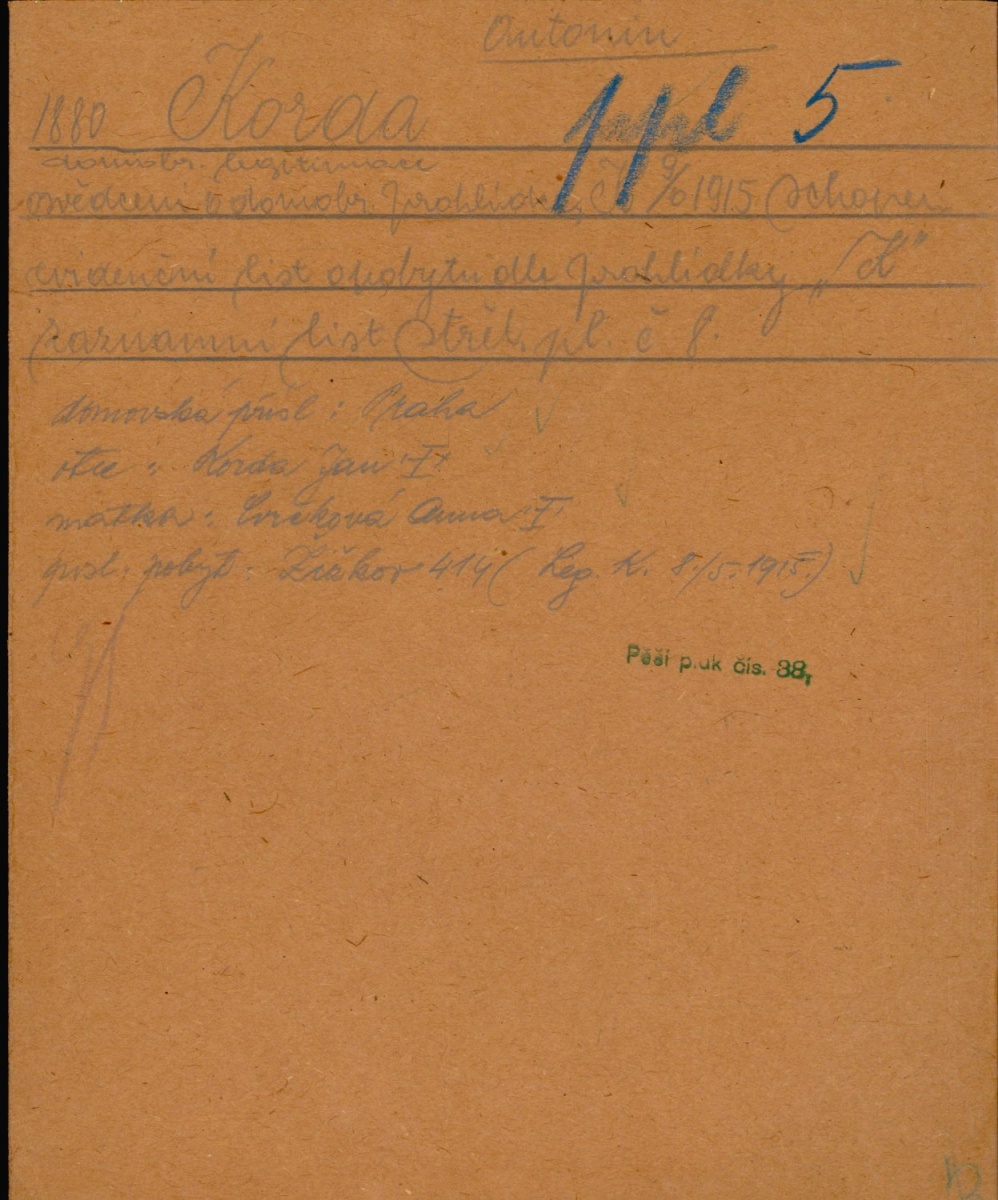 Antonín
1880 Korda ppl 5
domobr. legitimace
svědčení o domobr. prohlídce 1915 Schopen
evidenční list o pobytu dle prohlídky „K“
záznamní list Střel. pl. č 8.
domovská přísl: Praha
otec: Korda Jan
matka: Anna
posl. pobyt: Žižkov 414 (Leg. K. 8./5. 1915.)
Pěší pluk čís. 88,